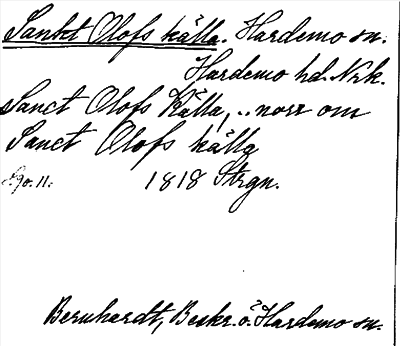 Sankt Olofs källa. Hardemo sn.
Hardemo hd. Nrk.
Sanct Olofs Källa, .. norr om
Sanct Olofs källa
1818 Strgn.
Bernhardt, Beskr. ö. Hardemo sn.